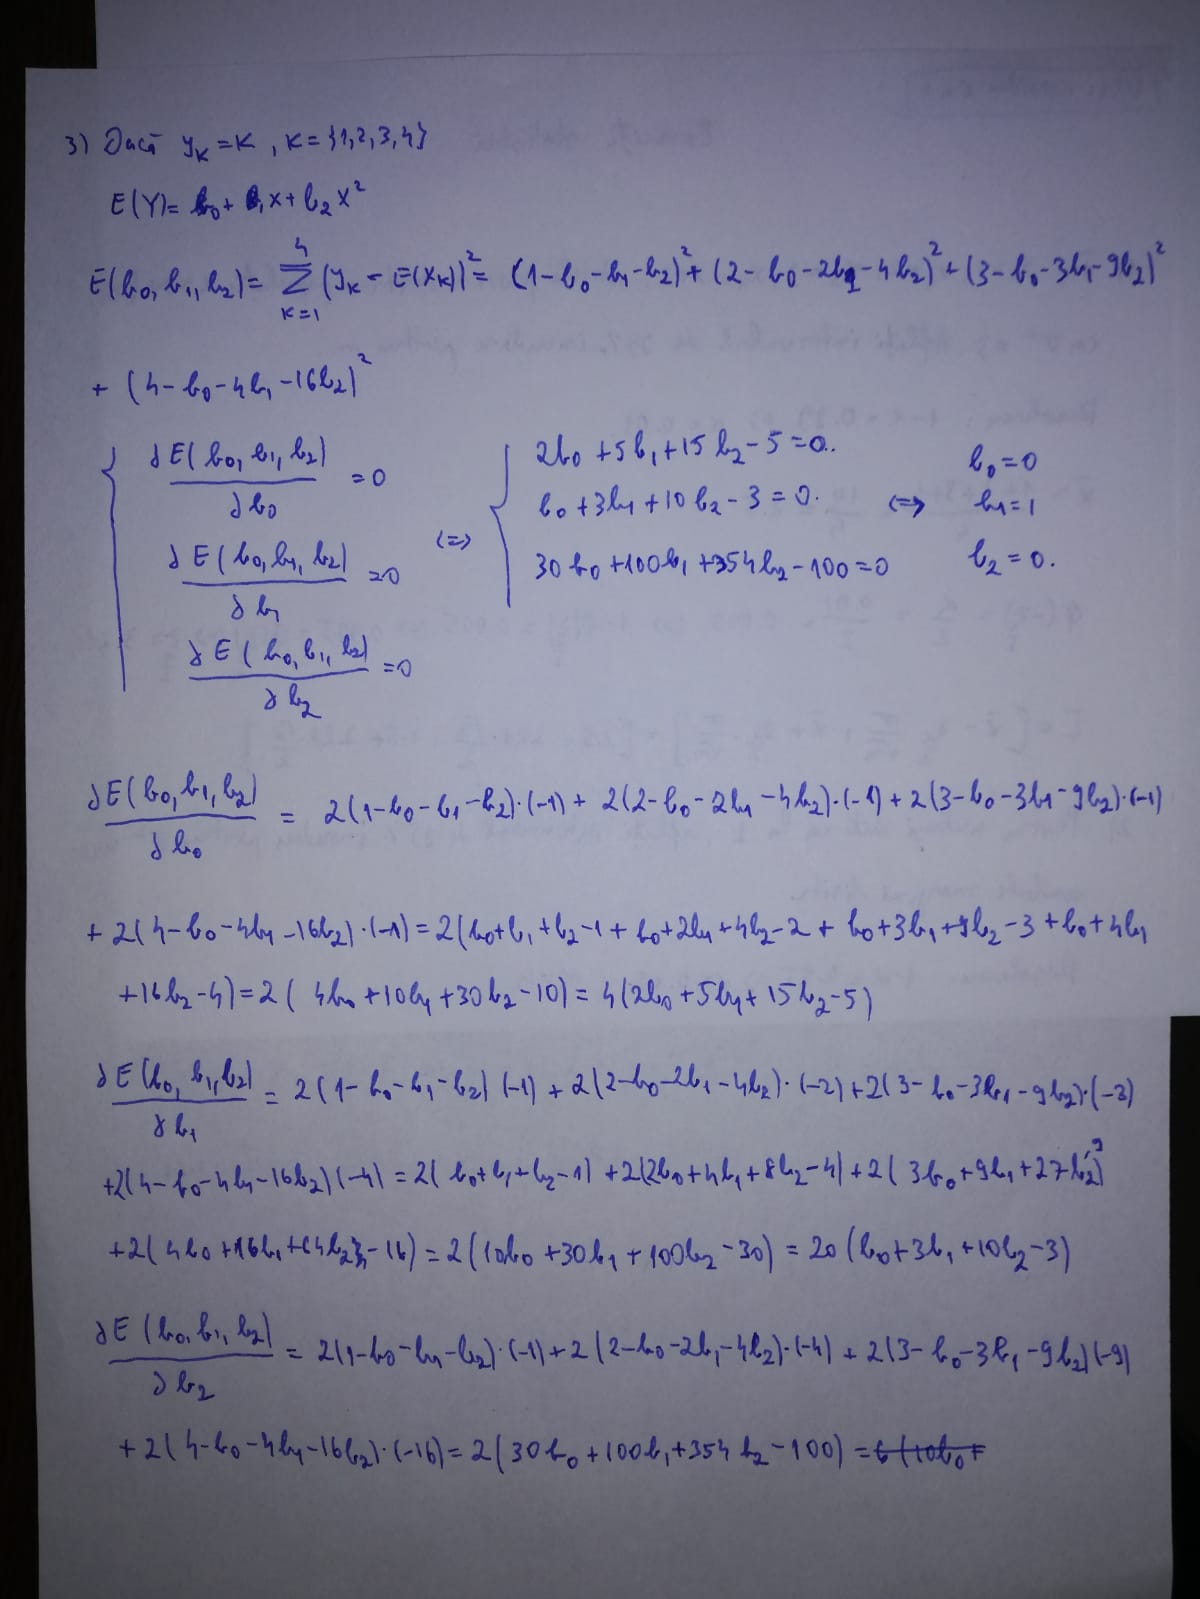 3) Dacă y_K = K , K = {1,2,3,4}
E(Y) = b_0 + b_1 x + b_2 x^2
E(b_0, b_1, b_2) = \sum_{K=1}^{4} (y_K - E(X_K))^2 = (1 - b_0 - b_1 - b_2)^2 + (2 - b_0 - 2b_1 - 4b_2)^2 + (3 - b_0 - 3b_1 - 9b_2)^2
+ (4 - b_0 - 4b_1 - 16b_2)^2
{ ∂E(b_0, b_1, b_2) / ∂b_0 = 0
∂E(b_0, b_1, b_2) / ∂b_1 = 0
∂E(b_0, b_1, b_2) / ∂b_2 = 0
<=> { 2b_0 + 5b_1 + 15b_2 - 5 = 0.
b_0 + 3b_1 + 10b_2 - 3 = 0.
30b_0 + 100b_1 + 354b_2 - 100 = 0
<=> b_0 = 0
b_1 = 1
b_2 = 0.
∂E(b_0, b_1, b_2) / ∂b_0 = 2(1 - b_0 - b_1 - b_2)·(-1) + 2(2 - b_0 - 2b_1 - 4b_2)·(-1) + 2(3 - b_0 - 3b_1 - 9b_2)·(-1)
+ 2(4 - b_0 - 4b_1 - 16b_2)·(-1) = 2(b_0 + b_1 + b_2 - 1 + b_0 + 2b_1 + 4b_2 - 2 + b_0 + 3b_1 + 9b_2 - 3 + b_0 + 4b_1
+ 16b_2 - 4) = 2(4b_0 + 10b_1 + 30b_2 - 10) = 4(2b_0 + 5b_1 + 15b_2 - 5)
∂E(b_0, b_1, b_2) / ∂b_1 = 2(1 - b_0 - b_1 - b_2)(-1) + 2(2 - b_0 - 2b_1 - 4b_2)·(-2) + 2(3 - b_0 - 3b_1 - 9b_2)·(-3)
+ 2(4 - b_0 - 4b_1 - 16b_2)(-4) = 2(b_0 + b_1 + b_2 - 1) + 2(2b_0 + 4b_1 + 8b_2 - 4) + 2(3b_0 + 9b_1 + 27b_2 - 9)
+ 2(4b_0 + 16b_1 + 64b_2 - 16) = 2(10b_0 + 30b_1 + 100b_2 - 30) = 20(b_0 + 3b_1 + 10b_2 - 3)
∂E(b_0, b_1, b_2) / ∂b_2 = 2(1 - b_0 - b_1 - b_2)·(-1) + 2(2 - b_0 - 2b_1 - 4b_2)·(-4) + 2(3 - b_0 - 3b_1 - 9b_2)(-9)
+ 2(4 - b_0 - 4b_1 - 16b_2)·(-16) = 2(30b_0 + 100b_1 + 354b_2 - 100) =